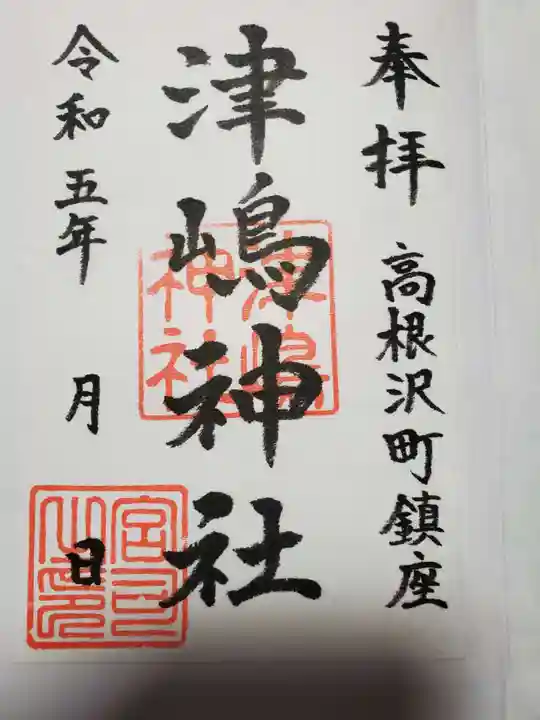 奉拝 高根沢町鎮座
津嶋神社
令和五年 月 日
津嶋神社
宮司之印